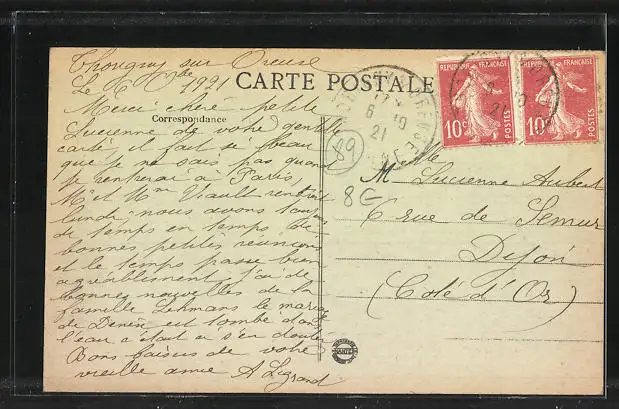 Thorigny sur Oreuse
Le 6 Obre 1921
CARTE POSTALE
Correspondance
Merci chère petite
Lucienne de votre gentille
carte, il fait si beau
que je ne sais pas quand
je rentrerai à Paris
Mr et Mme Vault rentrent
lundi nous avons
de temps en temps de
bonnes petites réunions
et le temps passe bien
agréablement j'ai de
bonnes nouvelles de la
famille Lehmans le
de est tombé dans
l'eau
Bons baisers de votre
vieille amie A Legrand
REPUBLIQUE FRANÇAISE
10c
POSTES
REPUBLIQUE FRANÇAISE
10c
POSTES
6 10
21
89
8G
Mlle
Lucienne Aubert
6 rue de Semur
Dijon
(Côte d'Or)